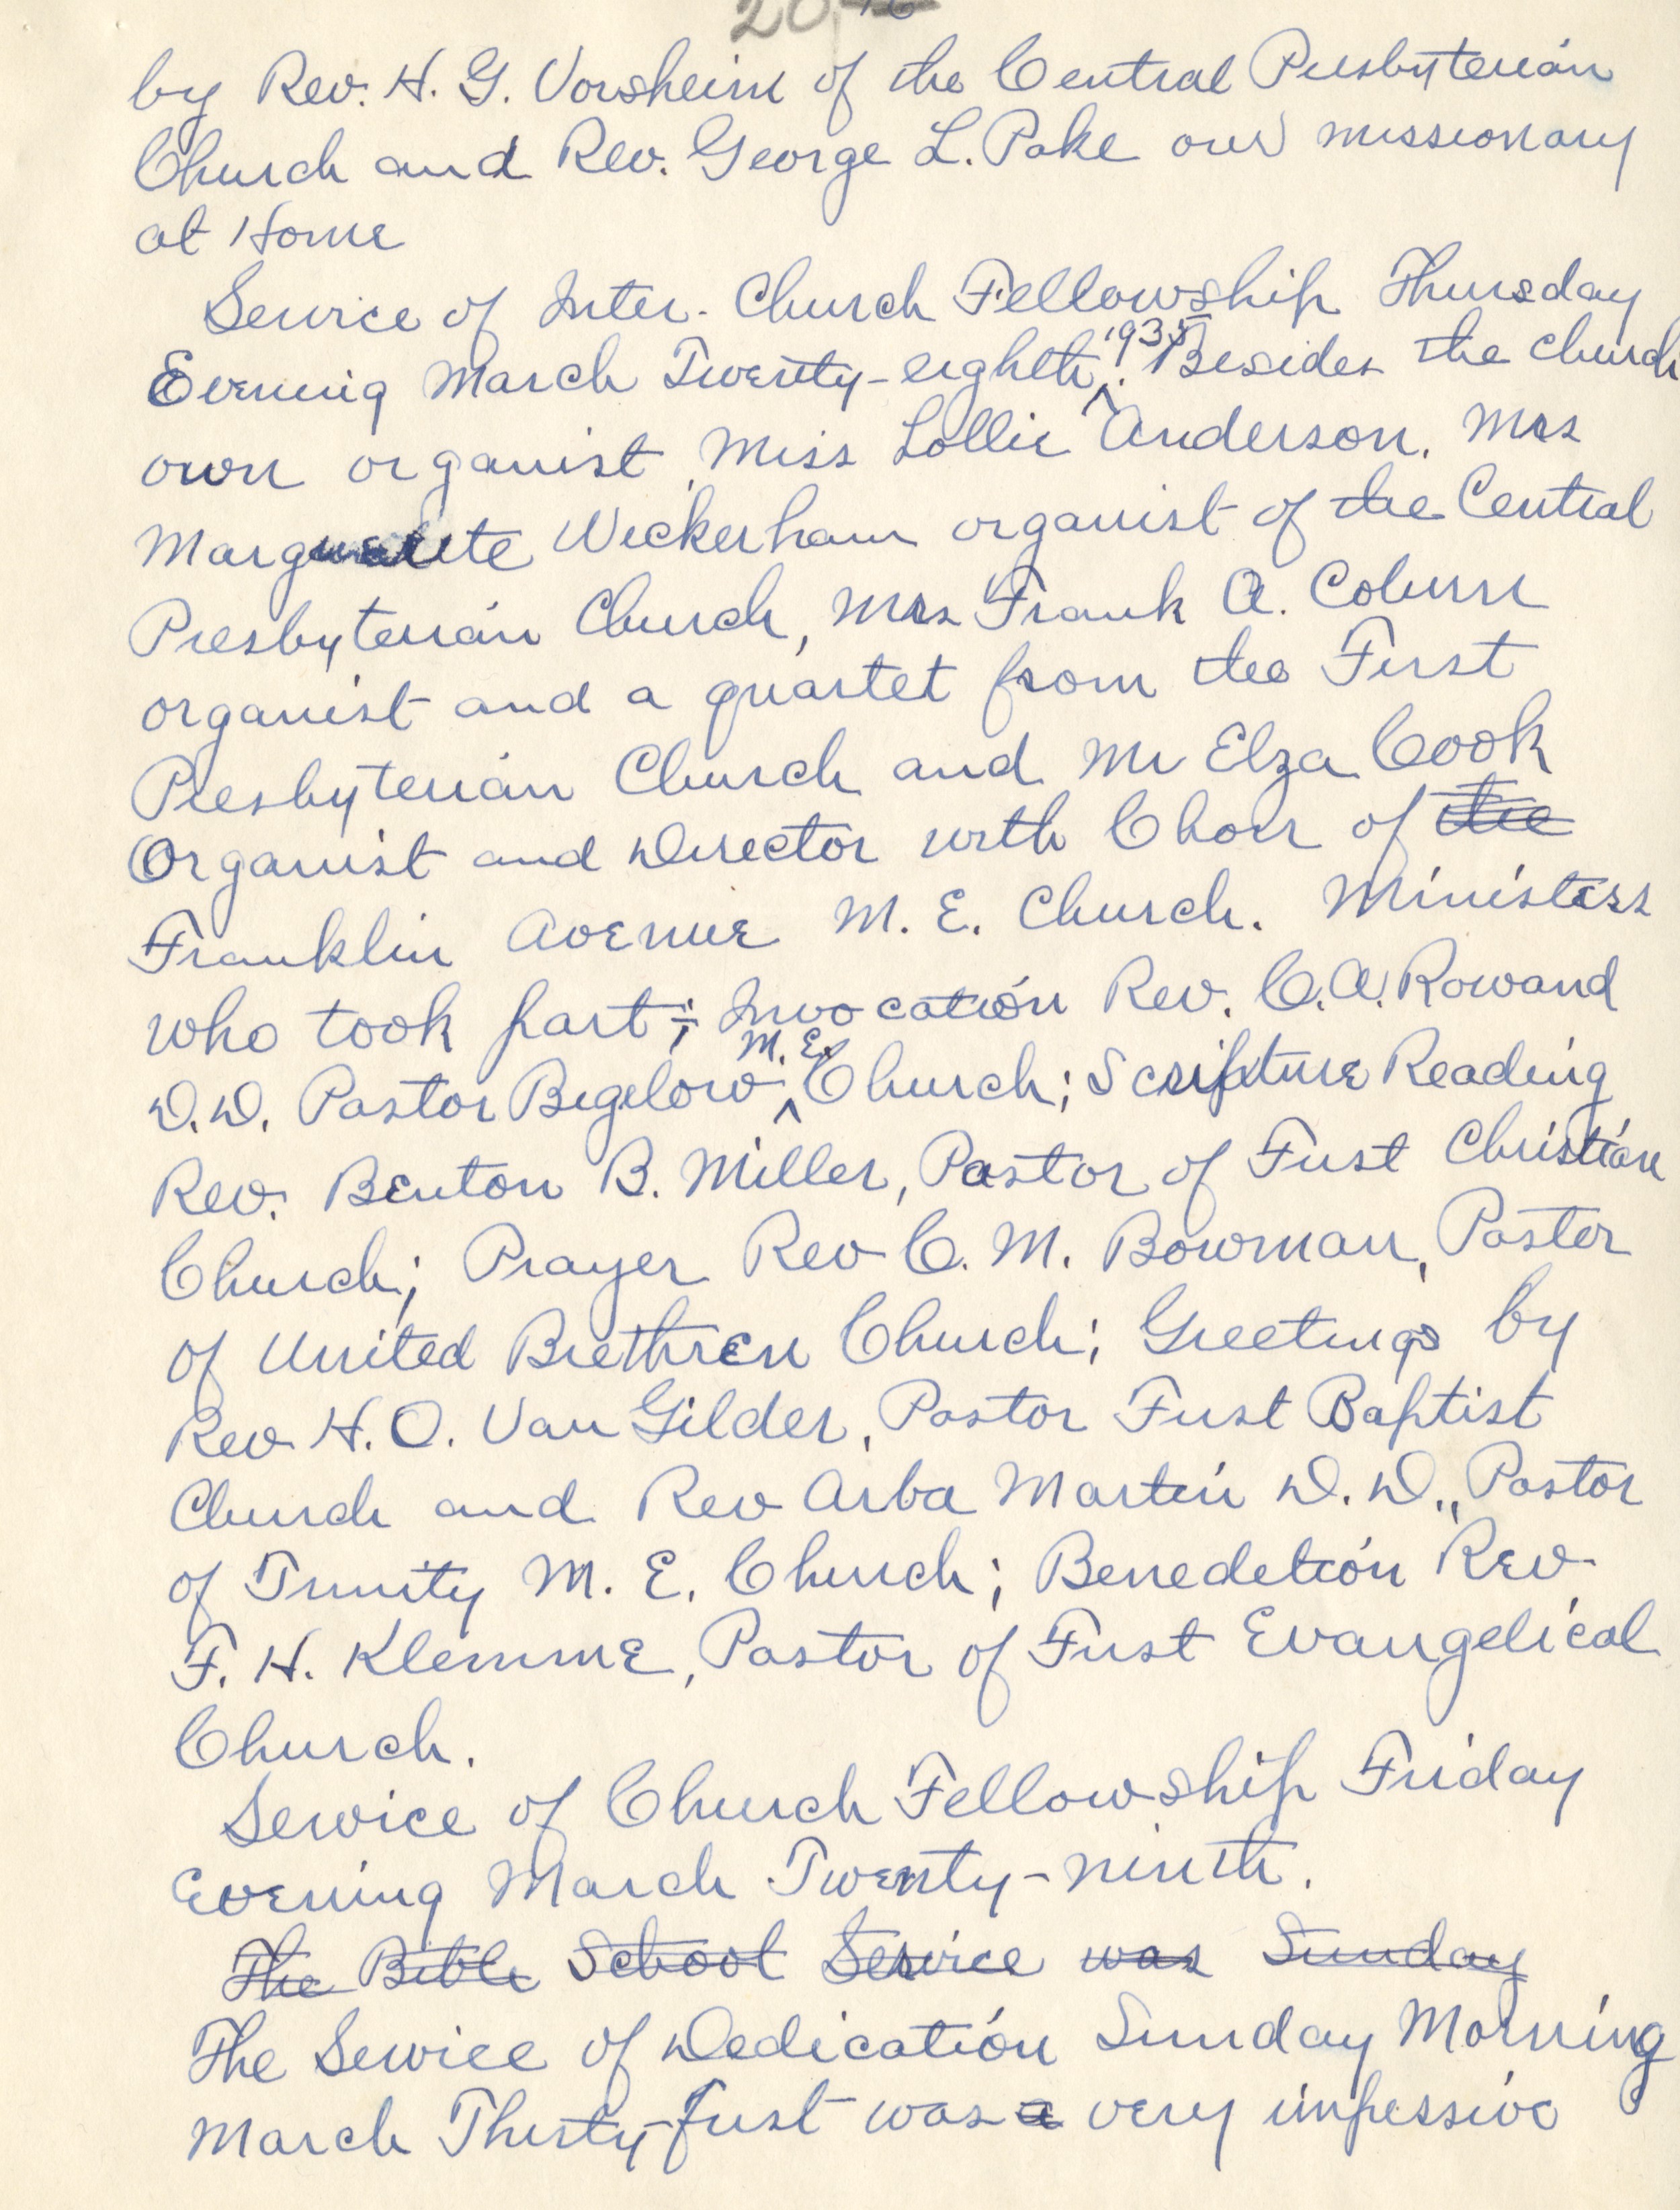 20
by Rev. H. G. Vorsheim of the Central Presbyterian
Church and Rev. George L. Pake our missionary
at Home
Service of Inter-Church Fellowship Thursday
Evening March Twenty-eighth 1935. Besides the church
own organist, Miss Lollie Anderson, Mrs
Marguerite Wickerham organist of the Central
Presbyterian Church, Mrs Frank A. Coburn
organist and a quartet from the First
Presbyterian Church and Mr Elza Cook
Organist and Director with Choir of the
Franklin Avenue M. E. Church. Ministers
who took part; Invocation Rev. C. A. Rowand
D.D. Pastor Bigelow M.E. Church; Scripture Reading
Rev. Benton B. Miller, Pastor of First Christian
Church; Prayer Rev C. M. Bowman, Pastor
of United Brethren Church; Greetings by
Rev H. O. Van Gilder, Pastor First Baptist
Church and Rev Arba Martin D.D., Pastor
of Trinity M. E. Church; Benediction Rev
F. H. Klemme, Pastor of First Evangelical
Church.
Service of Church Fellowship Friday
Evening March Twenty-ninth.
The Bible School Service was Sunday
The Service of Dedication Sunday Morning
March Thirty-first was a very impessive